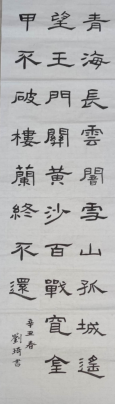 青海長雲闇雪山孤城遙
望王門關黃沙百戰穿金
甲不破樓蘭終不還
辛丑春
劉琦書